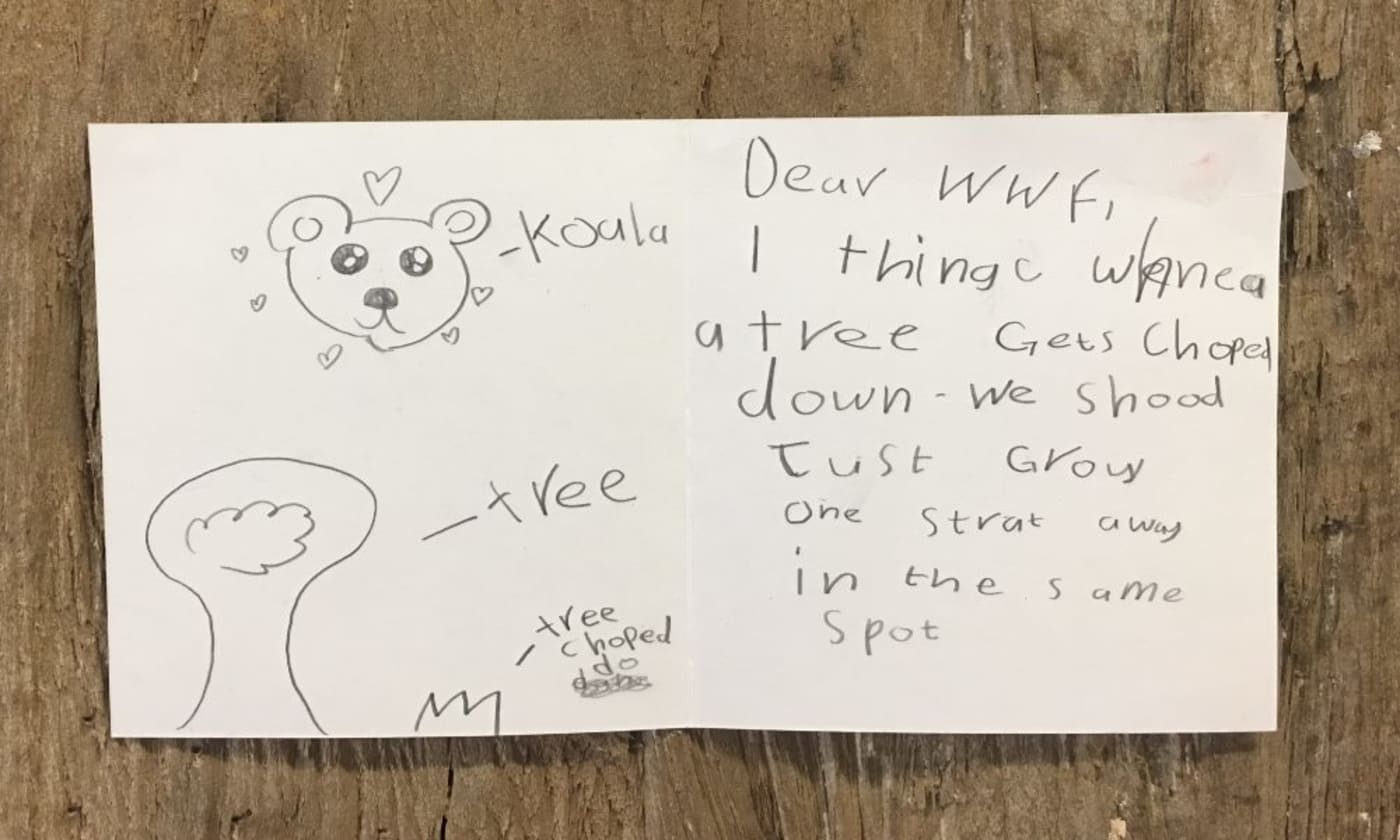 -Koala
-tree
-tree
choped
do
Dear WWF,
I thingc
a tree Gets Choped
down - we shood
Just Grow
one strat away
in the same
Spot